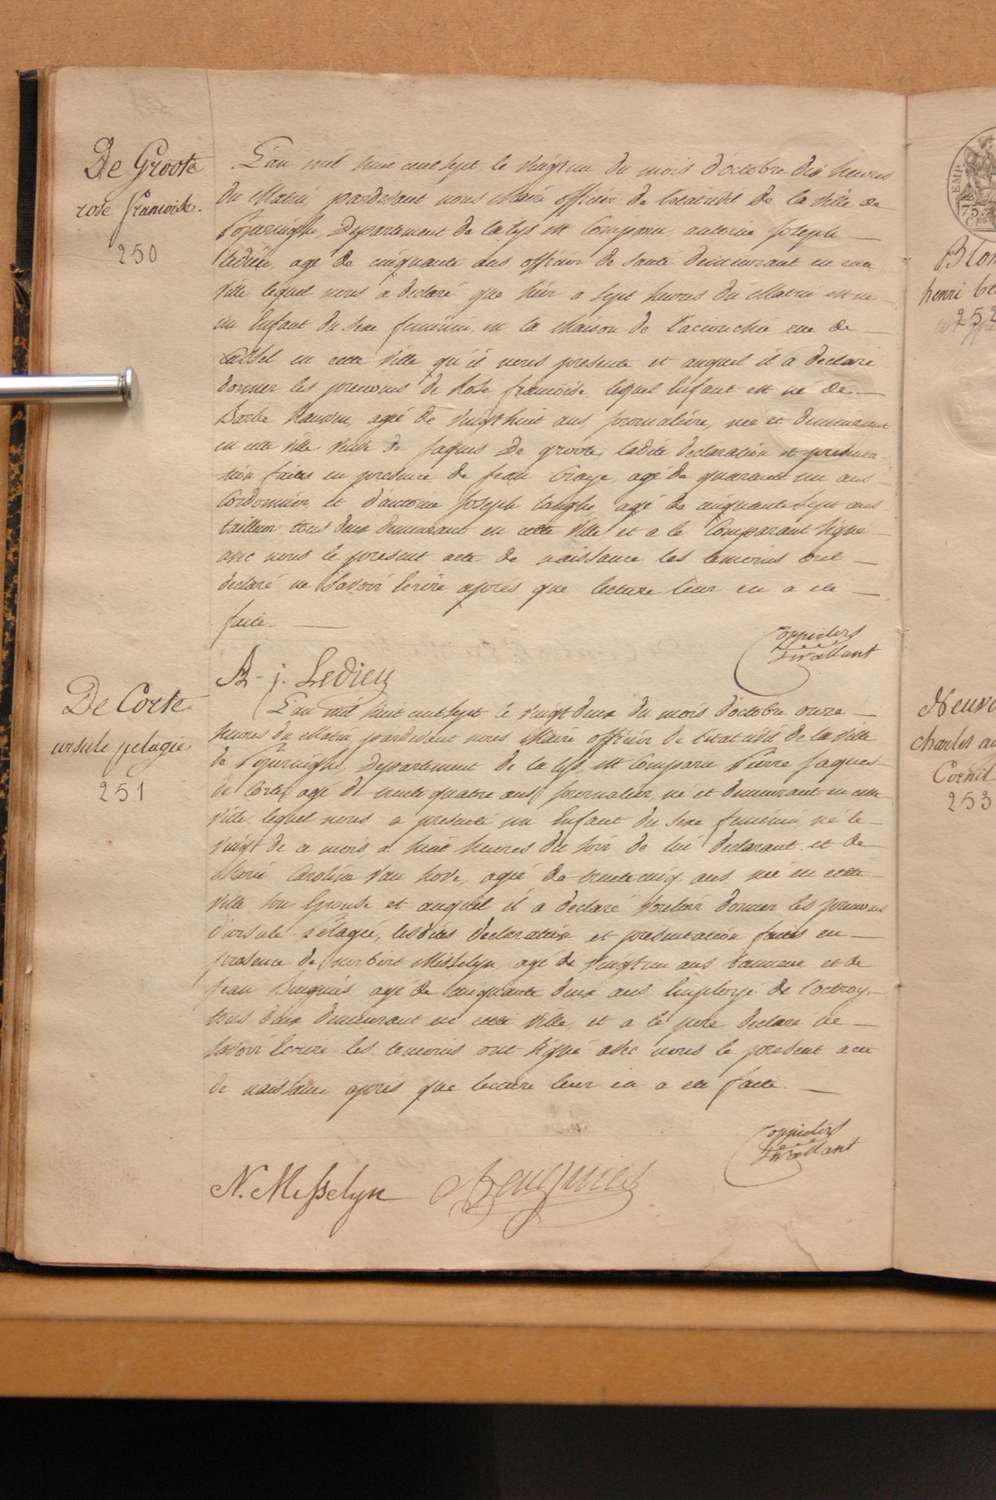 De Groote
rose francoise.
250
L'an mil huit cent sept le vingt un du mois d'octobre dix heures
du Matin pardevant nous Maire officier de l'etat civil de la ville de
Poperinghe Departement de la Lys est Comparu antoine Joseph
Ledieu, agé de cinquante ans officier de santé demeurant en cette
ville lequel nous a declaré que hier a sept heures du Matin est né
un Enfant du sexe feminin en la Maison de l'acouchée rue de
Cassel en cette ville qu'il nous presente et auquel il a declaré
donner les prenoms de Rose francoise lequel Enfant est né de
Barbe agée de vingt huit ans journalière, née et demeurant
en cette ville veuve de Jaques De groote, ladite declaration et presenta-
tion faites en presence de Jean agé de quarante un ans
Cordonnier et d'antoine Joseph agé de cinquante sept ans
tailleur tous deux demeurant en cette ville et a le Comparant signé
avec nous le present acte de naissance les temoins ont
declaré ne savoir Ecrire après que lecture leur en a été
faite.
Coppieters
Stivallant
A. j. Ledieu
De Corte
ursule pelagie
251
L'an mil huit cent sept le vingt deux du mois d'octobre onze
heures du Matin pardevant nous Maire officier de l'etat civil de la ville
de Poperinghe, Departement de la Lys est Comparu Pierre Jaques
de Corte, agé de trente quatre ans, journalier, né et demeurant en cette
ville, lequel nous a presenté un Enfant du sexe feminin, né le
vingt de ce mois a huit heures du soir de lui declarant et de
Marie Caroline van hove, agée de trente cinq ans née en cette
ville son Epouse et auquel il a declaré vouloir donner les prenoms
d'ursule Pélagie, lesdites declaration et presentation faites en
presence de Norbert Messelyn agé de vingt un ans et de
Jean agé de cinquante deux ans Employé de l'octroy
tous deux demeurant en cette ville, et a le pere declaré ne
savoir Ecrire les temoins ont signé avec nous le present acte
de naissance après que lecture leur en a été faite.
Coppieters
Stivallant
N. Messelyn
henri
252
Charles
Cornil
253